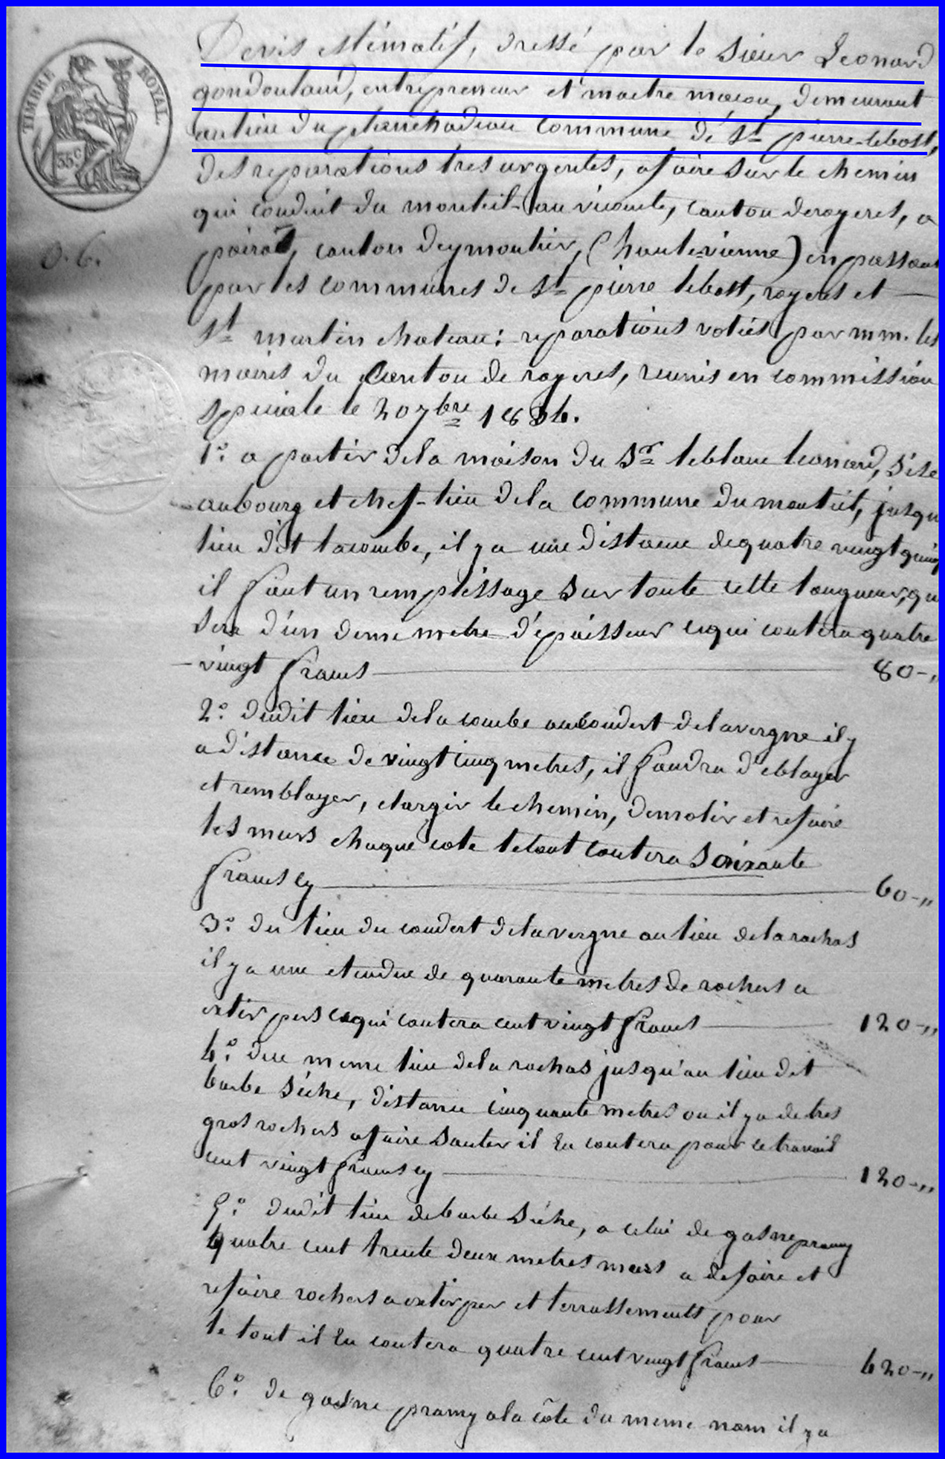 TIMBRE ROYAL.
35 c
Devis éstimatif, dressé par le sieur Leonard
gondoulaud, entrepreneur et maitre macon, demeurant
au lieu du commune de St pierre-lebost,
des reparations tres urgentes, a faire sur le chemin
qui conduit du monteil-au vicomte, canton deroyeres, a
pairat, canton deymoutier, (hautevienne) en passant
par les communes de St pierre lebost, royeres et
St martin chateau; reparations votées par mm. les
maires du Canton de royeres, reunis en commission
speciale le 20 7bre 1836.
1.o a partir dela maison du Sr leblanc leonard, sise
aubourg et chef-lieu dela commune du monteil, jusqu
lieu dit lacombe, il ya une distance dequatre vingt quinz
il faut un remplissage sur toute cette longueur, qu
sera d'un demi metre d'épaisseur cequi coutera quatre
vingt francs 80-"
2.o dudit lieu dela combe aucoudert delavergne il y
a distance de vingt cinq metres, il faudra déblayer
et remblayer, elargir le chemin, demolir et refaire
les murs chaque cote letout coutera soixante
francs cy 60-"
3.o du lieu du coudert delavergne au lieu delarochas
il ya une etendue de quarante metres de rochers a
extirpers cequi coutera cent vingt francs 120-"
4.o du meme lieu dela rochas jusqu'au lieu dit
barbe séche, distance cinquante metres ou il ya detres
gros rochers afaire sauter il En coutera pour ce travail
cent vingt francs cy 120-"
5.o dudit lieu debarbe séche, a celui de gasnepramy
quatre cent trente deux metres murs a defaire et
refaire rochers a extirper et terrassements pour
le tout il En coutera quatre cent vingt francs 420-"
6.o de gasne pramy ala côte du meme nom il ya